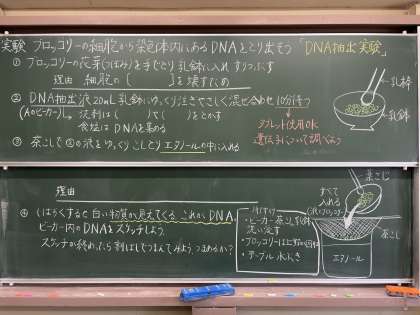 実験 ブロッコリーの細胞から染色体内にあるDNAをとり出そう「DNA抽出実験」
① ブロッコリーの花芽(つぼみ)を手でとり 乳鉢に入れ すりつぶす
理由 細胞の( )を壊すため
② DNA抽出液20mL 乳鉢にゆっくり注ぎやさしく混ぜ合わせ 10分待つ
(Aのビーカー)。洗剤は( )で( )をとかす
食塩はDNAを集める
タブレット使用OK
遺伝子について調べよう
乳棒
乳鉢
③ 茶こしで②の液をゆっくりこしとり エタノールの中に入れる
理由
④ しばらくすると白い物質が見えてくる これがDNA
ビーカー内のDNAをスケッチしよう
スケッチが終わったら 利はしでつまんでみよう つまめるか?
・ビーカー 茶こし 乳鉢
洗い流す
・ブロッコリーは
・テーブル 水ぶき
すべて
入れる
茶こし
茶こし
エタノール